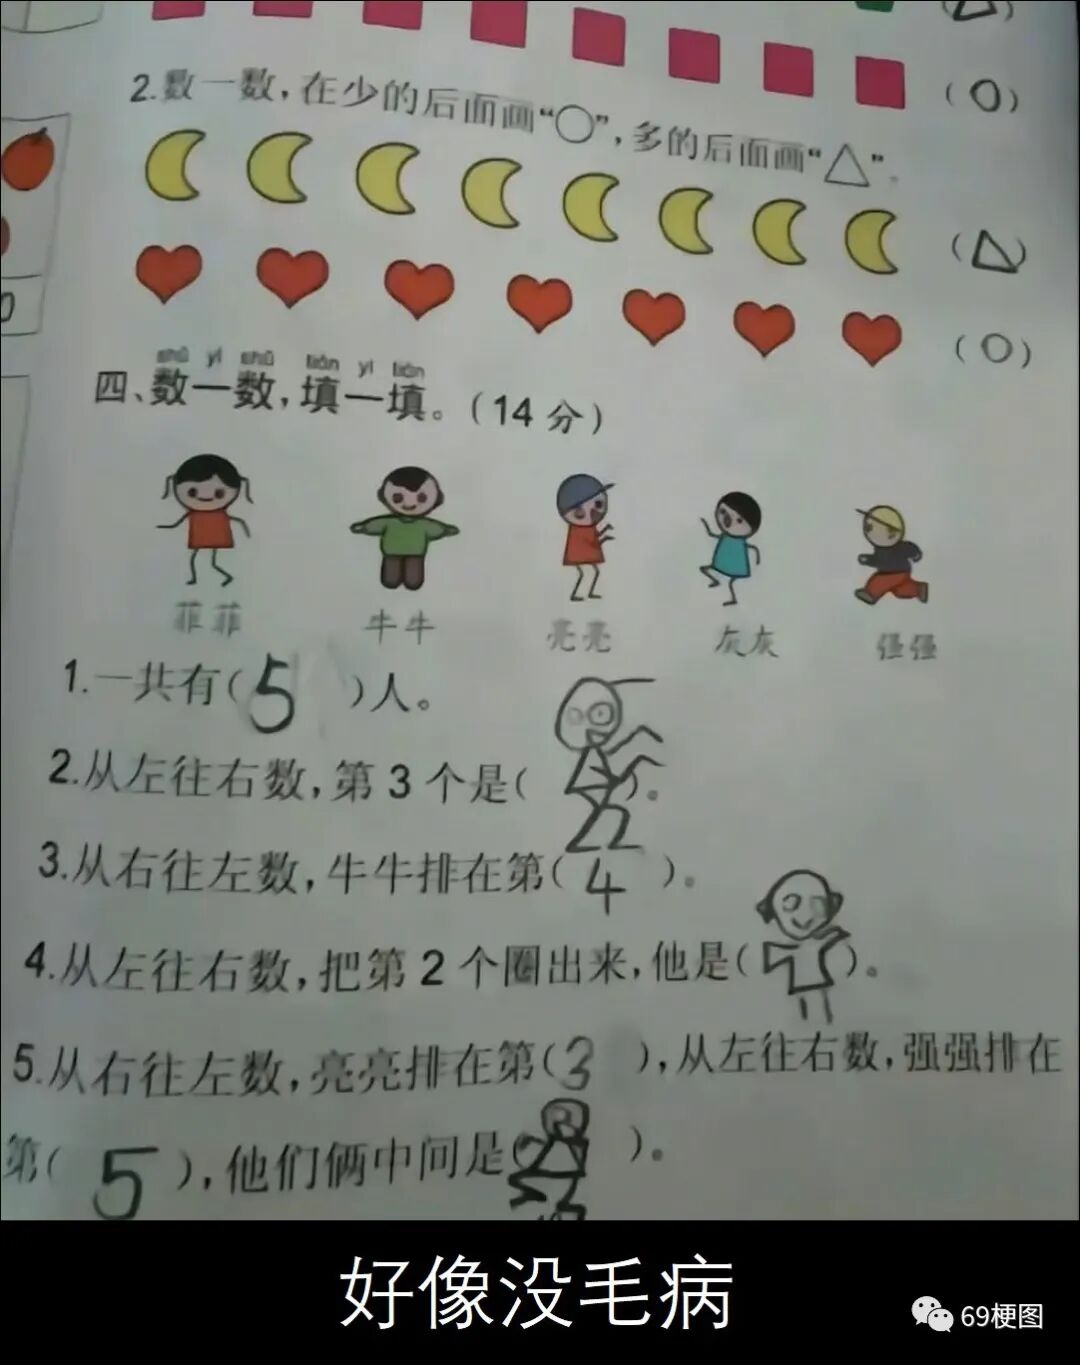 2.数一数，在少的后面画“○”，多的后面画“△”。
shǔ yì shǔ tián yì tián
四、数一数，填一填。（14 分）
菲菲 牛牛 亮亮 灰灰 强强
1.一共有( 5 )人。
2.从左往右数，第 3 个是( )。
3.从右往左数，牛牛排在第( 4 )。
4.从左往右数，把第 2 个圈出来，他是( )。
5.从右往左数，亮亮排在第( 3 )，从左往右数，强强排在
第( 5 )，他们俩中间是( )。
好像没毛病
69梗图